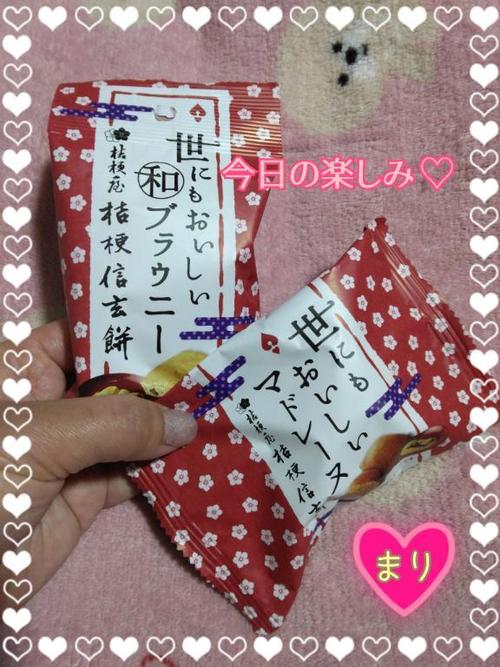 世にもおいしい
和ブラウニー
桔梗屋 桔梗信玄餅
今日の楽しみ♡
世にも
おいしい
マドレーヌ
桔梗屋 桔梗信玄
まり